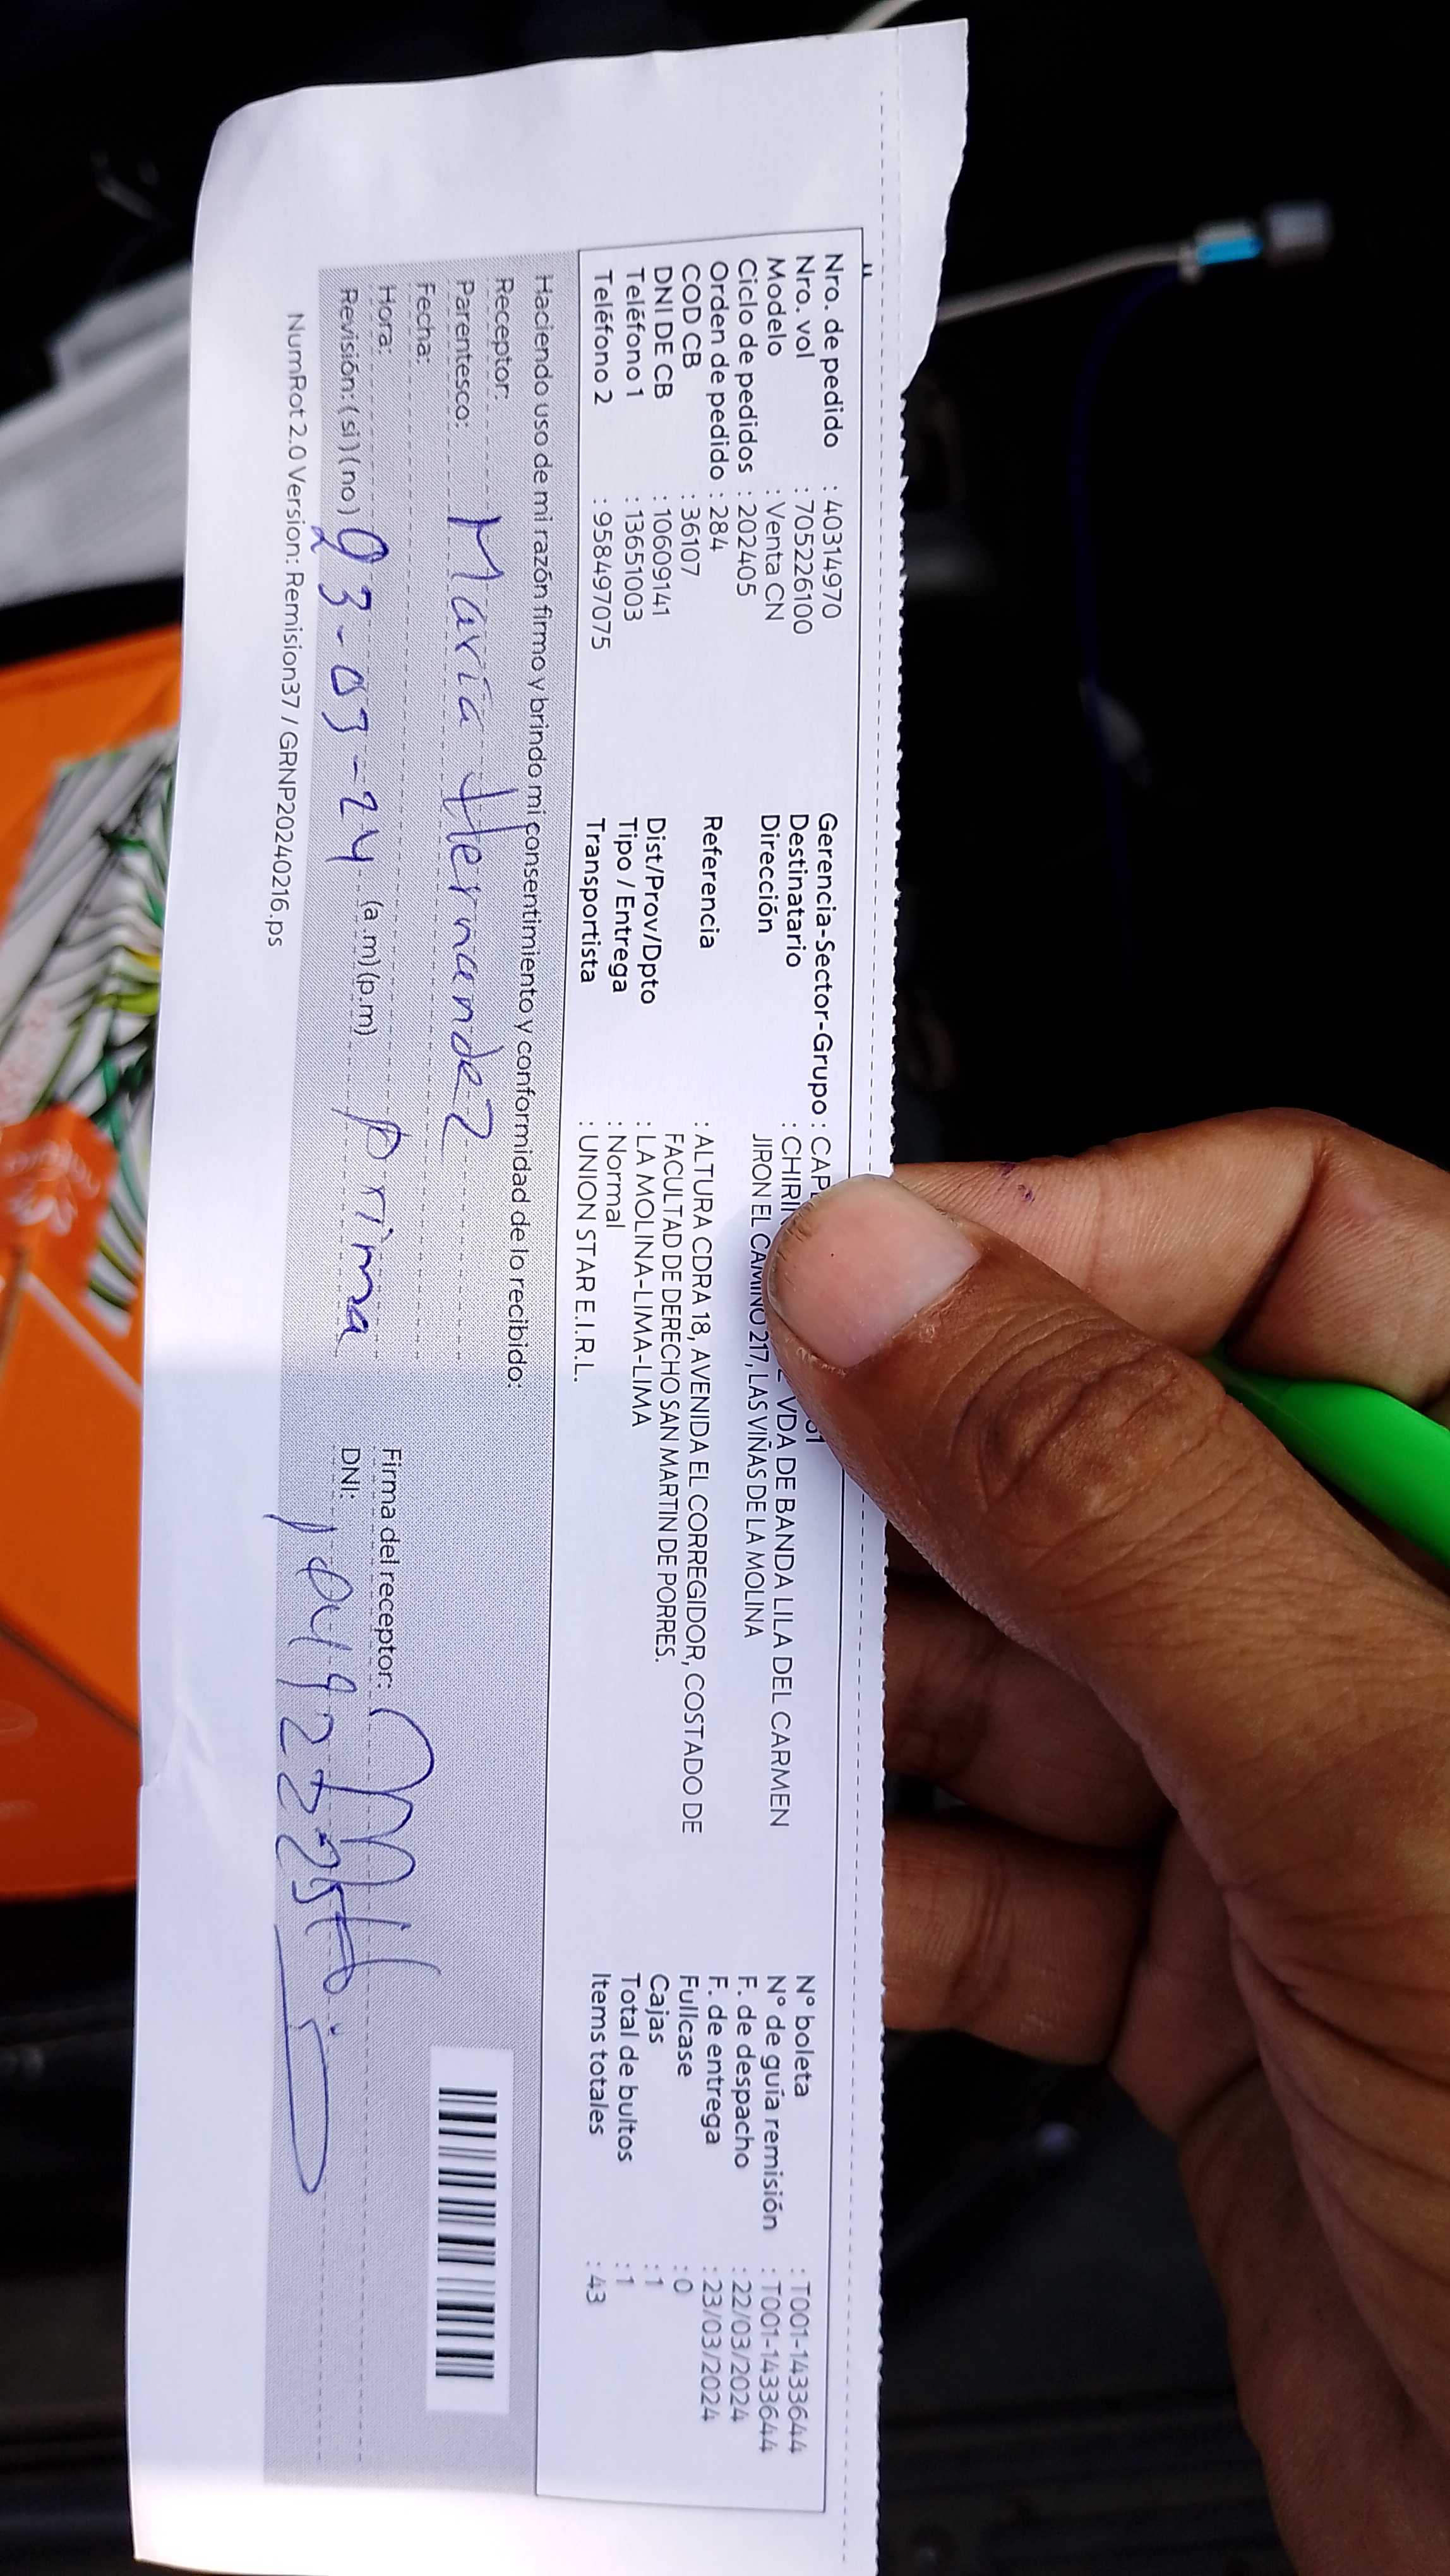 Nro. de pedido : 40314970
Nro. vol : 705226100
Modelo : Venta CN
Ciclo de pedidos : 202405
Orden de pedido : 284
COD CB : 36107
DNI DE CB : 10609141
Teléfono 1 : 13651003
Teléfono 2 : 958497075
Gerencia-Sector-Grupo :
Destinatario : VDA DE BANDA LILA DEL CARMEN
Dirección JIRON EL CAMINO 217, LAS VIÑAS DE LA MOLINA
Referencia : ALTURA CDRA 18, AVENIDA EL CORREGIDOR, COSTADO DE
FACULTAD DE DERECHO SAN MARTIN DE PORRES.
Dist/Prov/Dpto : LA MOLINA-LIMA-LIMA
Tipo / Entrega : Normal
Transportista : UNION STAR E.I.R.L.
N° boleta : T001-1433644
N° de guía remisión : T001-1433644
F. de despacho : 22/03/2024
F. de entrega : 23/03/2024
Fullcase : 0
Cajas : 1
Total de bultos : 1
Items totales : 43
Haciendo uso de mi razón firmo y brindo mi consentimiento y conformidad de lo recibido:
Receptor:
Parentesco: María Hernandez
Fecha:
Hora: (a.m)(p.m) Prima
Revisión: (si) (no) 23-03-24
Firma del receptor:
DNI:
NumRot 2.0 Version: Remision37 / GRNP20240216.ps